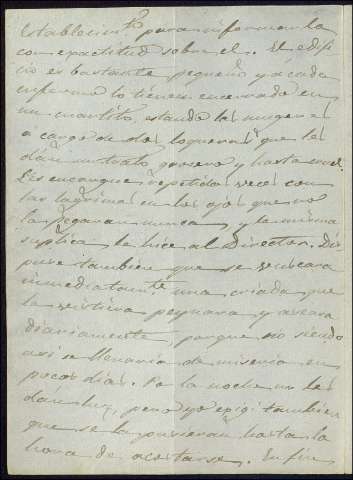 Establecimto. para informarla
con exactitud sobre el. El edifi
cio es bastante pequeño y á cada
enferma lo tienen encerrado en
un cuartito, estando las mugeres
á cargo de dos loqueras que les
dan un trato grosero y hasta cruel.
Les encargué repetidas veces con
las lagrimas en los ojos que no
la pegaran nunca, y la misma
suplica le hice al Director. Dis
puse tambien que se buscara
inmediatamte. una criada que
la vistiera peynara y aseara
diariamente, porque no siendo
asi se llenaria de miseria en
pocos dias. Por la noche no les
dan luz, pero yo exigí tambien
que se la pusieran hasta la
hora de acostarse. En fin